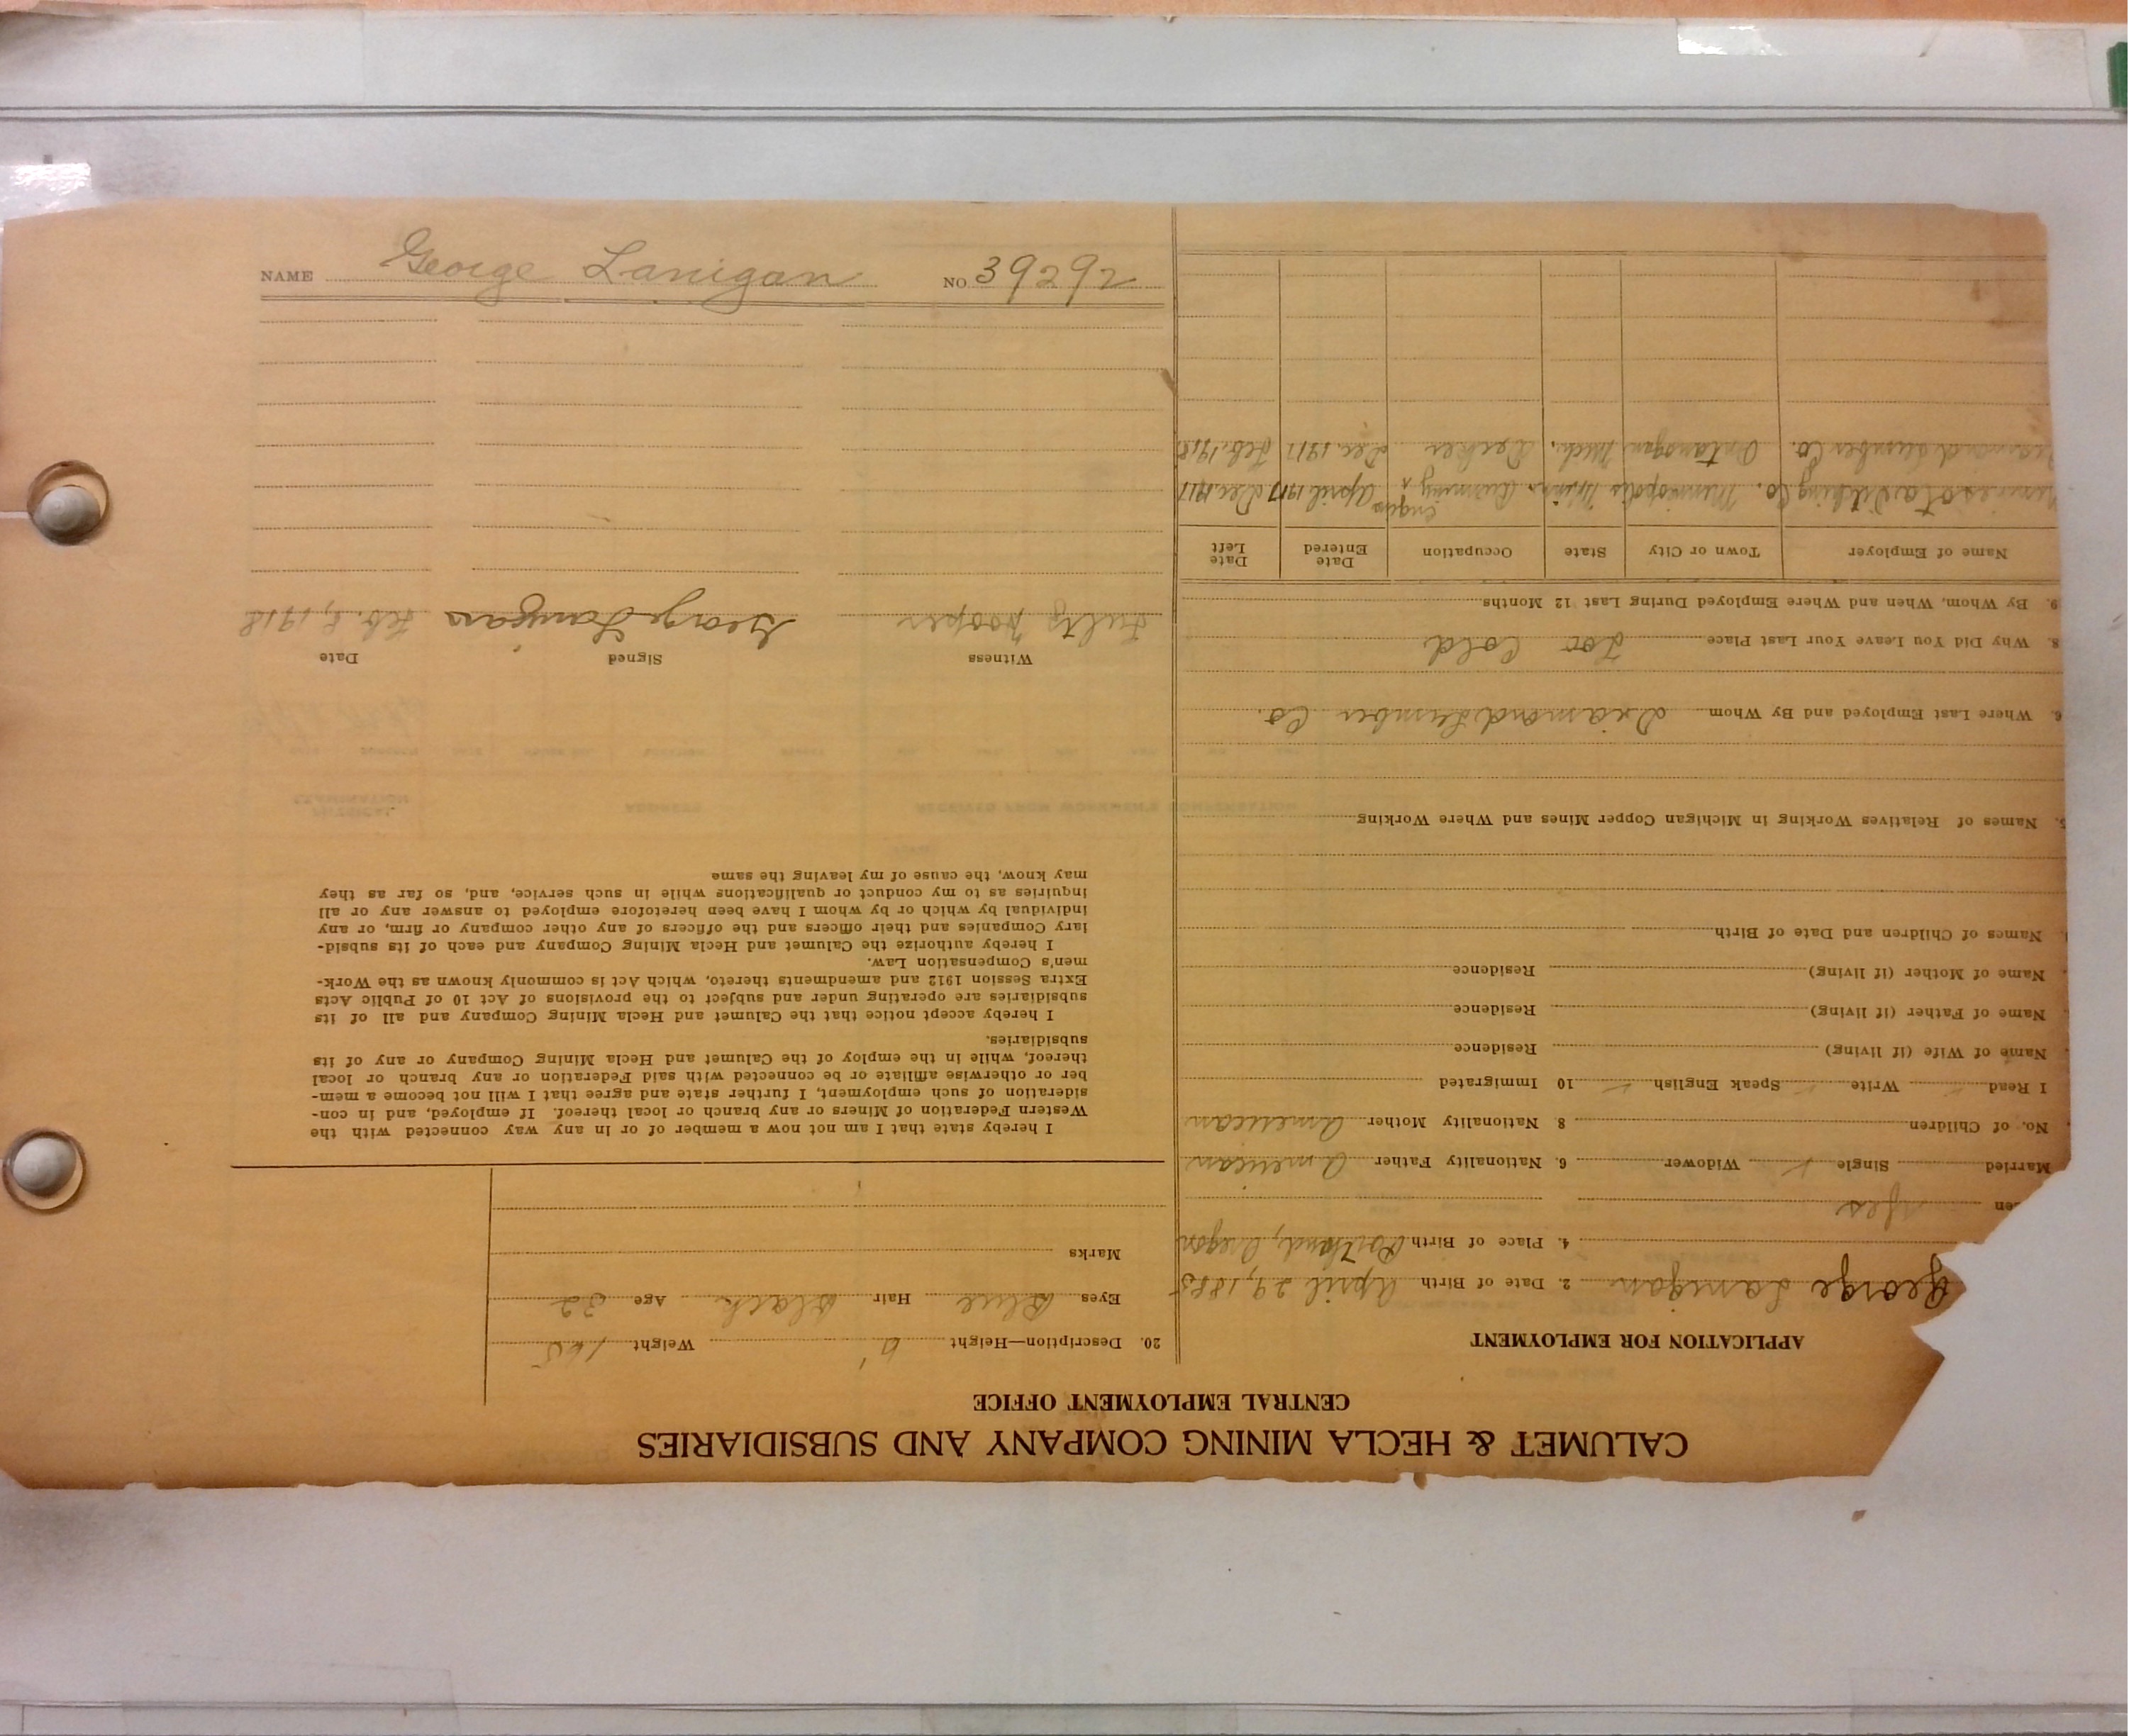 CALUMET & HECLA MINING COMPANY AND SUBSIDIARIES
CENTRAL EMPLOYMENT OFFICE
APPLICATION FOR EMPLOYMENT
George Lanigan 2. Date of Birth April 29, 1885
4. Place of Birth Portland, Oregon
Yes
Married Single ✓ Widower 6. Nationality Father American
No. of Children 8 Nationality Mother American
I Read ✓ Write ✓ Speak English ✓ 10 Immigrated
Name of Wife (if living) Residence
Name of Father (if living) Residence
Name of Mother (if living) Residence
Names of Children and Date of Birth
Names of Relatives Working in Michigan Copper Mines and Where Working
6. Where Last Employed and By Whom Diamond Lumber Co.
8. Why Did You Leave Your Last Place Too Cold
9. By Whom, When and Where Employed During Last 12 Months
Name of Employer Town or City State Occupation Date Entered Date Left
Ditching Co. Minneapolis Minn Running engine April 1917 Dec. 1917
Lumber Co. Ontanogan Mich. Decker Dec. 1917 Feb. 1918
20. Description—Height 6' Weight 165
Eyes Blue Hair Black Age 32
Marks
I hereby state that I am not now a member of or in any way connected with the
Western Federation of Miners or any branch or local thereof. If employed, and in con-
sideration of such employment, I further state and agree that I will not become a mem-
ber or otherwise affiliate or be connected with said Federation or any branch or local
thereof, while in the employ of the Calumet and Hecla Mining Company or any of its
subsidiaries.
I hereby accept notice that the Calumet and Hecla Mining Company and all of its
subsidiaries are operating under and subject to the provisions of Act 10 of Public Acts
Extra Session 1912 and amendments thereto, which Act is commonly known as the Work-
men's Compensation Law.
I hereby authorize the Calumet and Hecla Mining Company and each of its subsid-
iary Companies and their officers and the officers of any other company or firm, or any
individual by which or by whom I have been heretofore employed to answer any or all
inquiries as to my conduct or qualifications while in such service, and, so far as they
may know, the cause of my leaving the same
Witness Signed Date
Hooper George Lanigan Feb. 8, 1918
NAME George Lanigan NO 39292